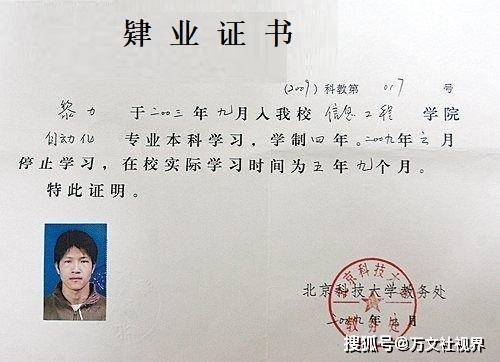 肄业证书
(2009) 科教第 017 号
黎力 于二〇〇三年九月入我校 信息工程 学院
自动化 专业本科学习，学制四年。二〇〇九年六月
停止学习，在校实际学习时间为五年九个月。
特此证明。
北京科技大学教务处
二〇〇九年六月
北京科技大
教务处
搜狐号@万文社视界